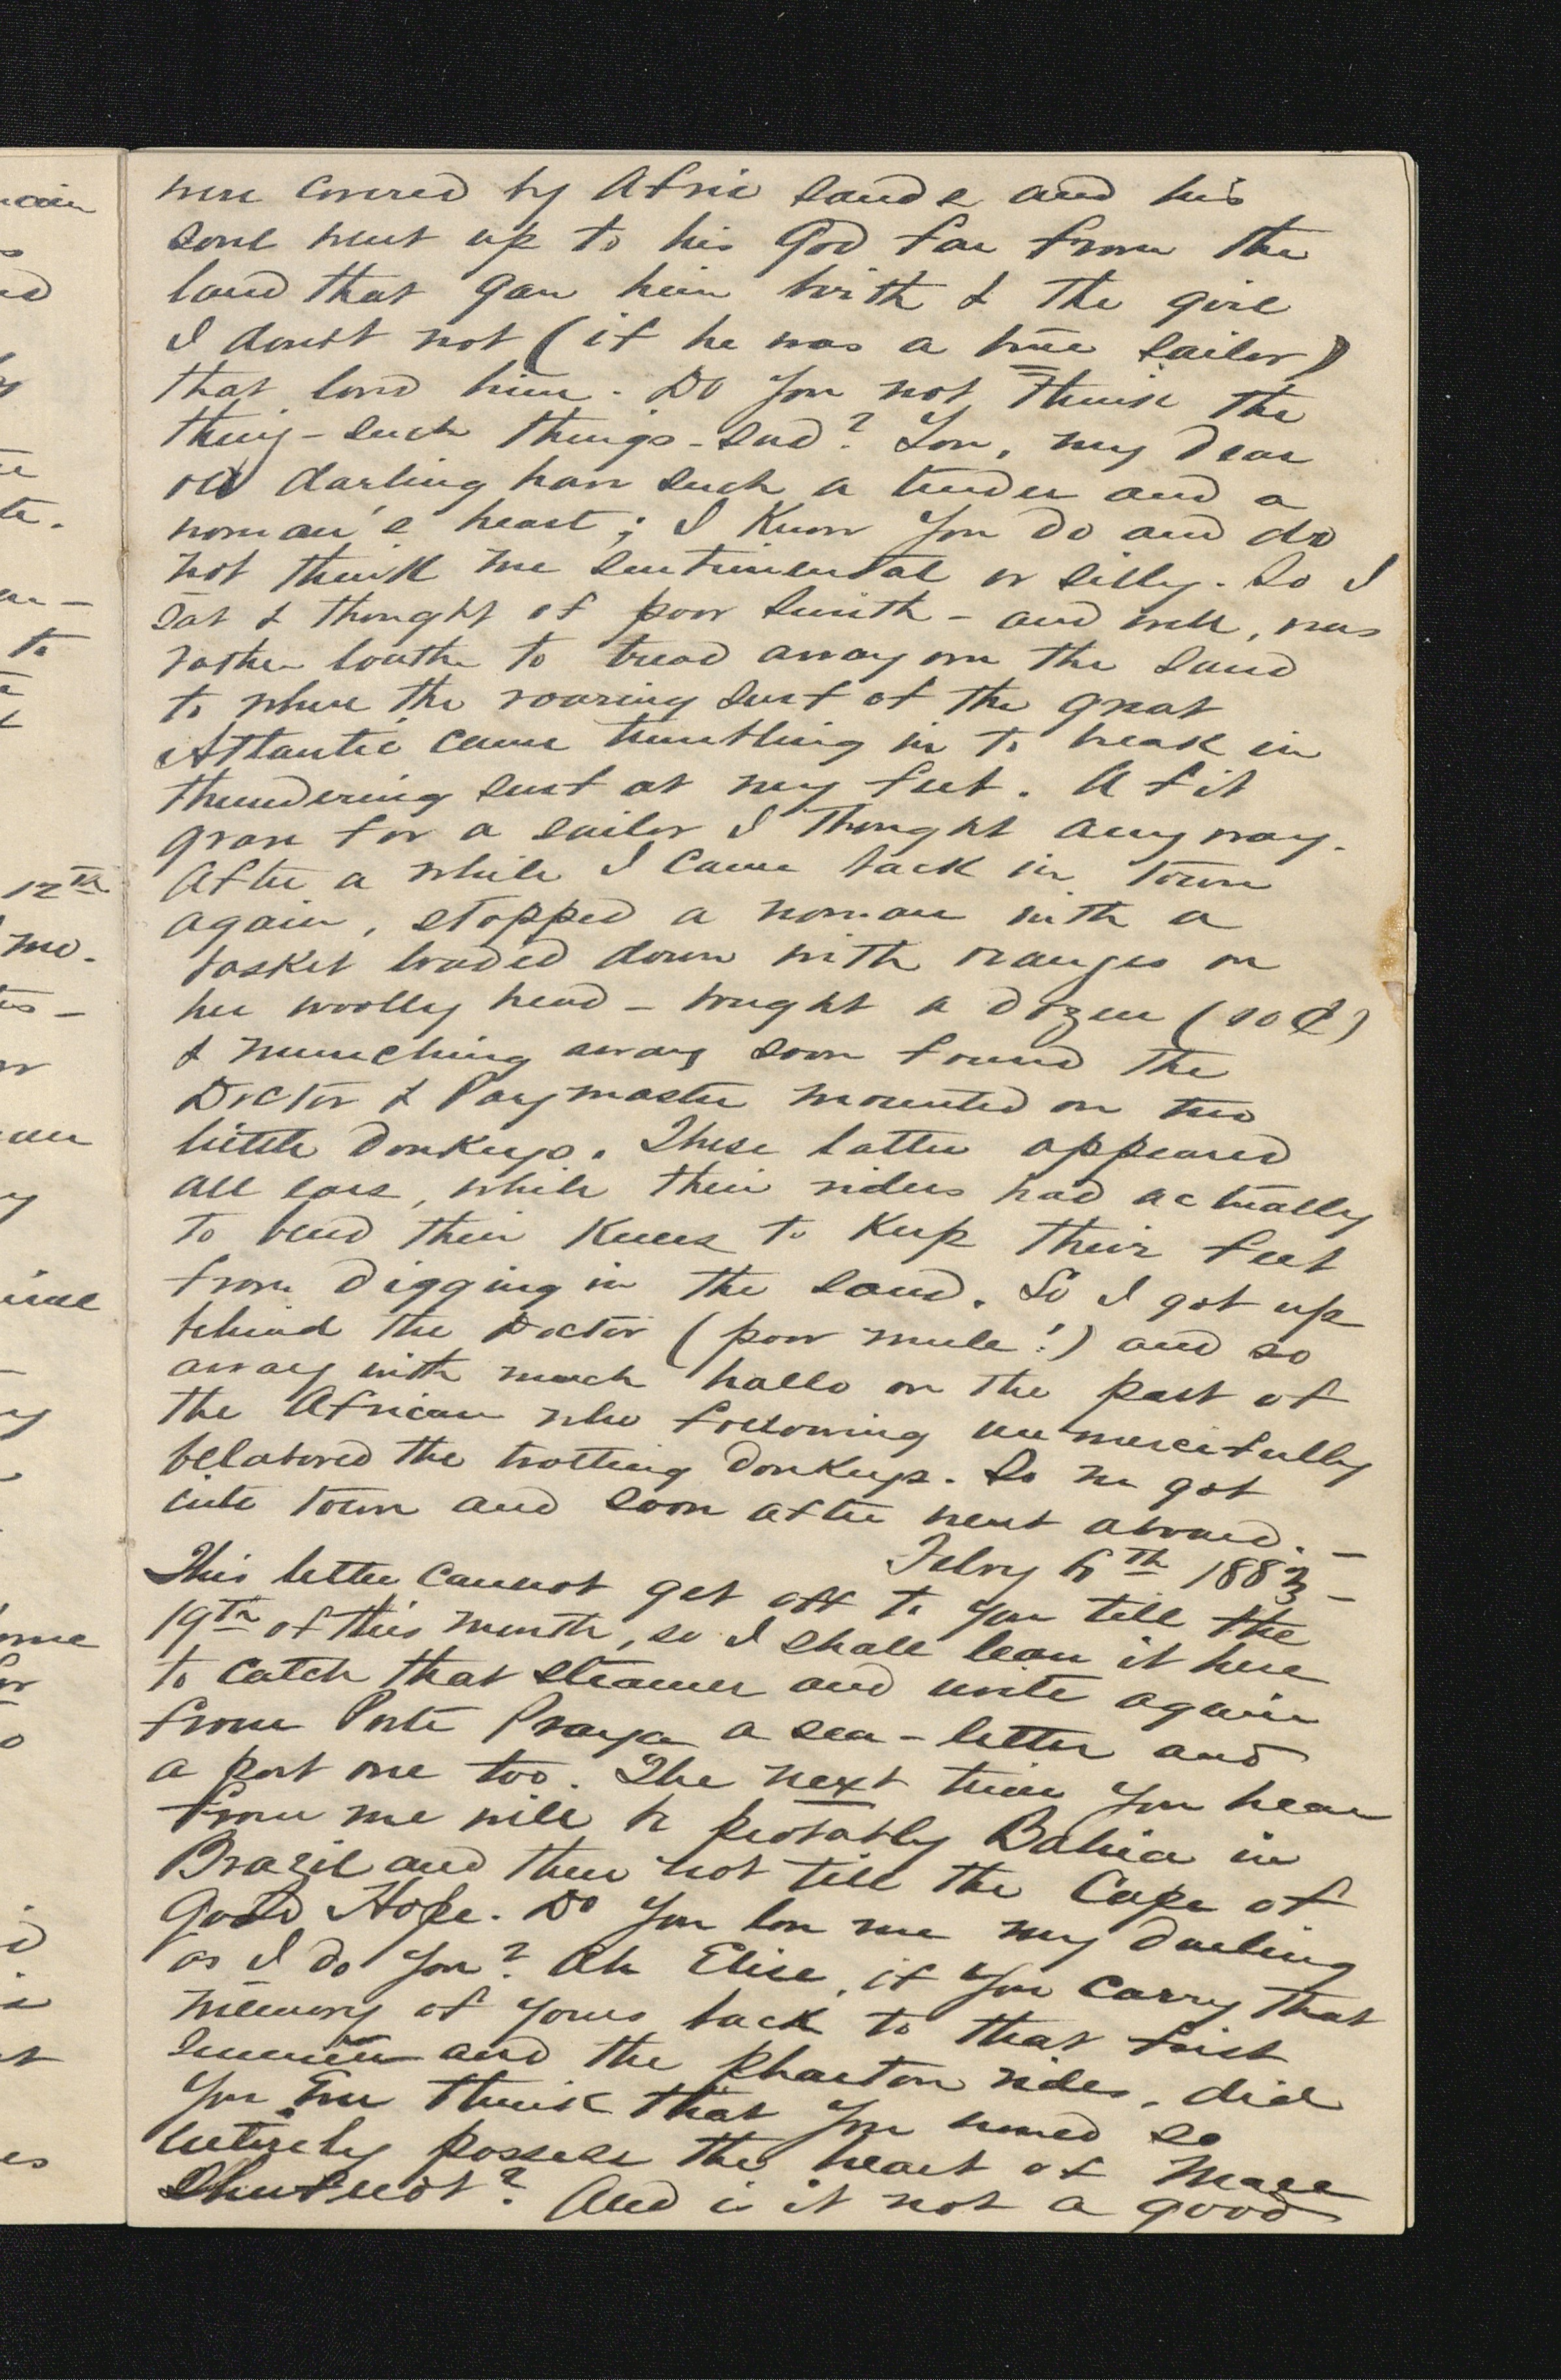 were covered by Afric sands and his
soul went up to his God far from the
land that gave him birth & the girl
I doubt not (if he was a true sailor)
that loved him. Do you not think the
thing - such things - sad? You, my dear
old darling have such a tender and a
woman's heart; I know you do and do
not think me sentimental or silly. So I
sat & thought of poor Smith - and well, was
rather loathe to tread away on the sand
to where the roaring surf of the great
Atlantic came tumbling in to break in
thundering surf at my feet. A fit
grave for a sailor I thought any way.
After a while I came back in town
again, stopped a woman with a
basket loaded down with oranges on
her woolly head - bought a dozen (10¢)
& munching away soon found the
Doctor & Paymaster mounted on two
little donkeys. These latter appeared
all ears, while their riders had actually
to bend their knees to keep their feet
from digging in the sand. So I got up
behind the Doctor (poor mule!) and so
away with much hallo on the part of
the African who following unmercifully
belabored the trotting donkeys. So we got
into town and soon after went aboard. -
Febry 6th 1883 -
This letter cannot get off to you till the
19th of this month, so I shall leave it here
to catch that steamer and write again
from Porte Praya a sea-letter and
a port one too. The next time you hear
from me will be probably Bahia in
Brazil and then not till the Cape of
Good Hope. Do you love me my darling
as I do you? Ah Elise, if you carry that
memory of yours back to that first
summer and the phaeton rides, did
you ever think that you would so
entirely possess the heart of Mase
Shufeldt? And is it not a good
12th
mo.